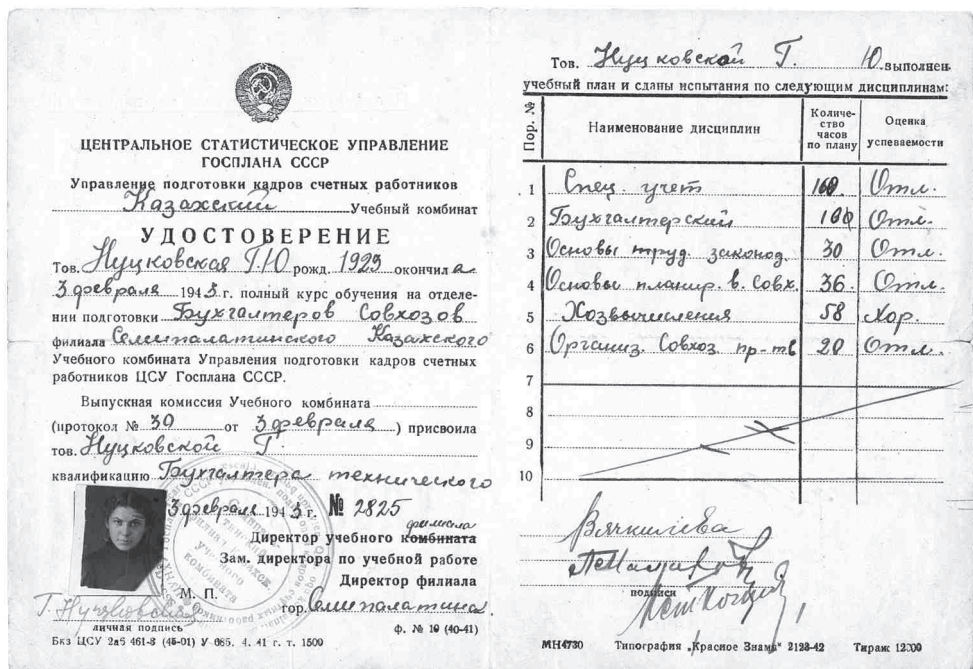 ЦЕНТРАЛЬНОЕ СТАТИСТИЧЕСКОЕ УПРАВЛЕНИЕ
ГОСПЛАНА СССР
Управление подготовки кадров счетных работников
Казахский Учебный комбинат
УДОСТОВЕРЕНИЕ
Тов. Нуцковская Г.Ю рожд. 1923 окончила
3 февраля 1943 г. полный курс обучения на отделе-
нии подготовки Бухгалтеров Совхозов
филиала Семипалатинского Казахского
Учебного комбината Управления подготовки кадров счетных
работников ЦСУ Госплана СССР.
Выпускная комиссия Учебного комбината
(протокол № 39 от 3 февраля) присвоила
тов. Нуцковской Г.
квалификацию Бухгалтера технического
3 февраля 1943 г. № 2825
филиала
Директор учебного комбината
Зам. директора по учебной работе
Директор филиала
М. П.
гор. Семипалатинск.
Г. Нуцковская
личная подпись
ф. № 19 (40-41)
Бкз ЦСУ 2а5 461-8 (45-01) У 665. 4. 41 г. т. 1500
Тов. Нуцковской Г. Ю. выполнен
учебный план и сданы испытания по следующим дисциплинам:
Пор. № Наименование дисциплин Количе-ство часов по плану Оценка успеваемости
1 Спец. учет 160 Отл.
2 Бухгалтерский 100 Отл.
3 Основы труд. законод. 30 Отл.
4 Основы планир. в. Совх. 36. Отл.
5 Хозвычисления 58 Хор.
6 Организ. Совхоз. пр-тв 20 Отл.
7
8
9
10
подписи
МН4730 Типография „Красное Знамя" 2123-42 Тираж 12000